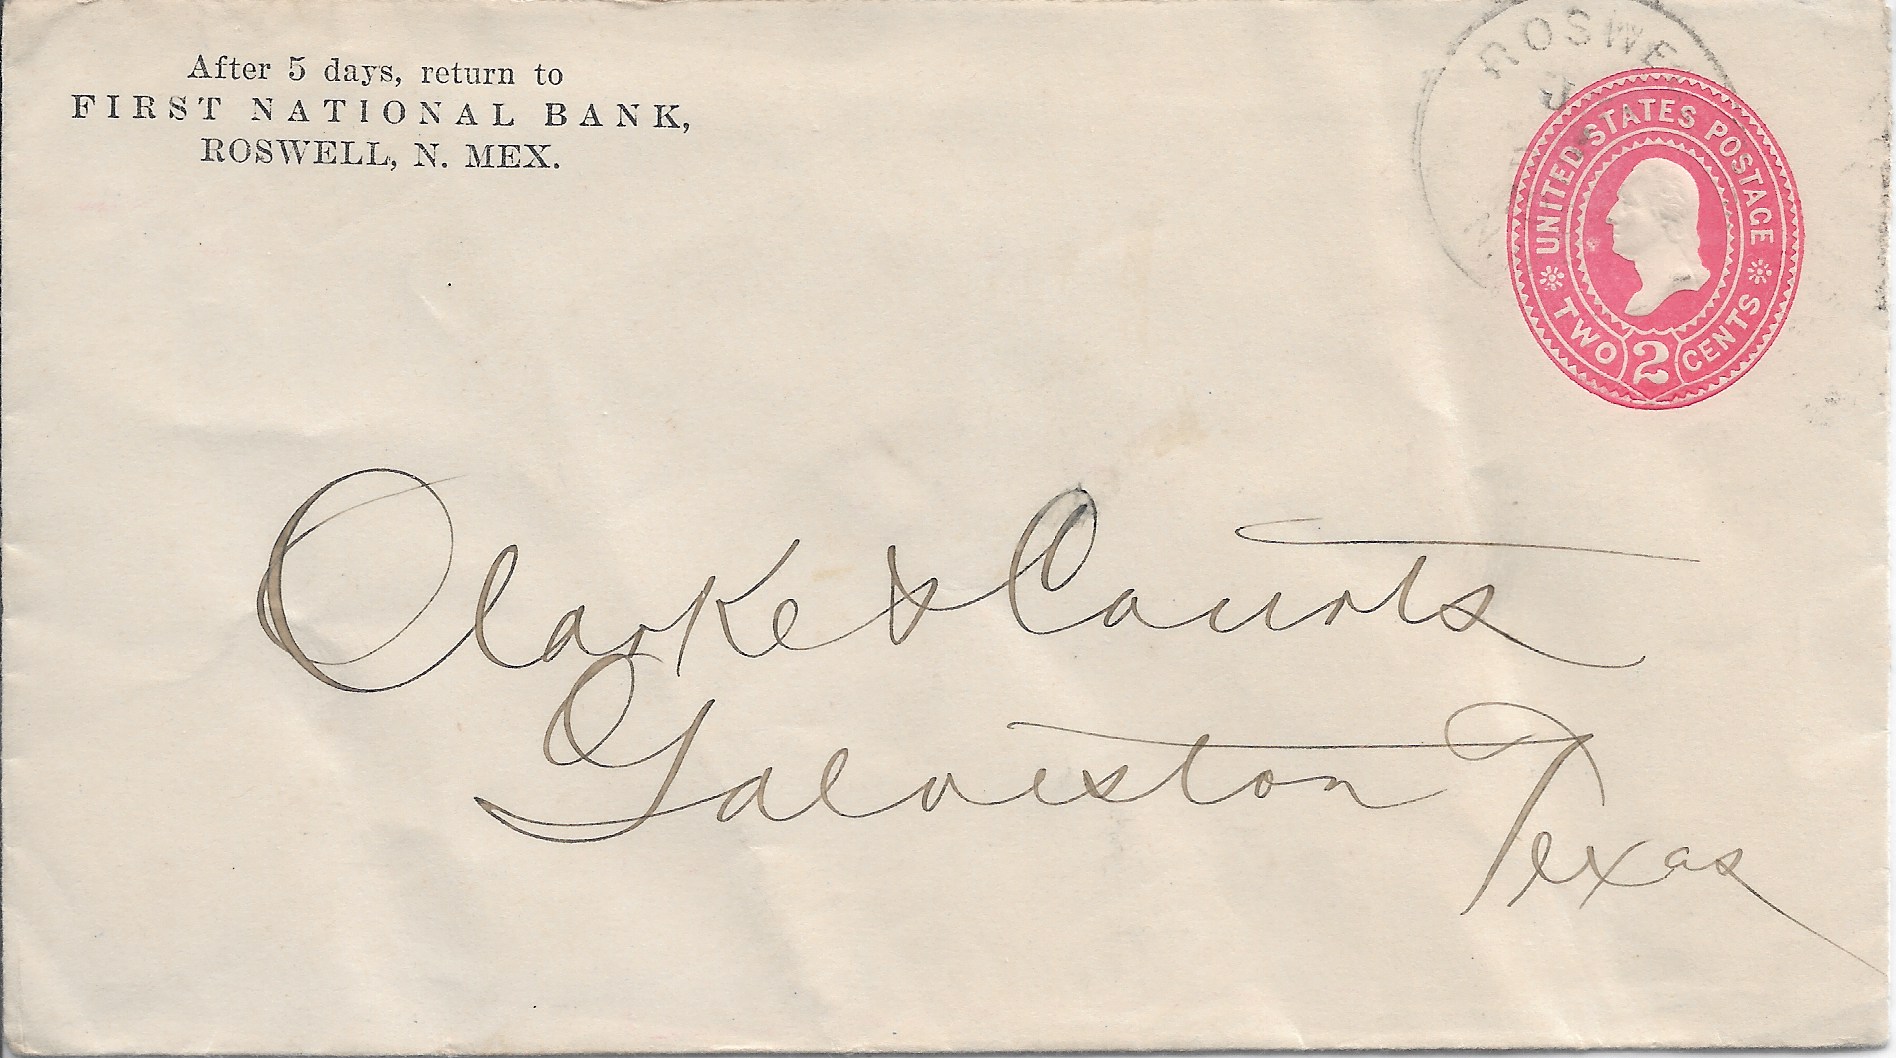 After 5 days, return to
FIRST NATIONAL BANK,
ROSWELL, N. MEX.
ROSWE
UNITED STATES POSTAGE
TWO 2 CENTS
Clarke & Courts
Galveston
Texas